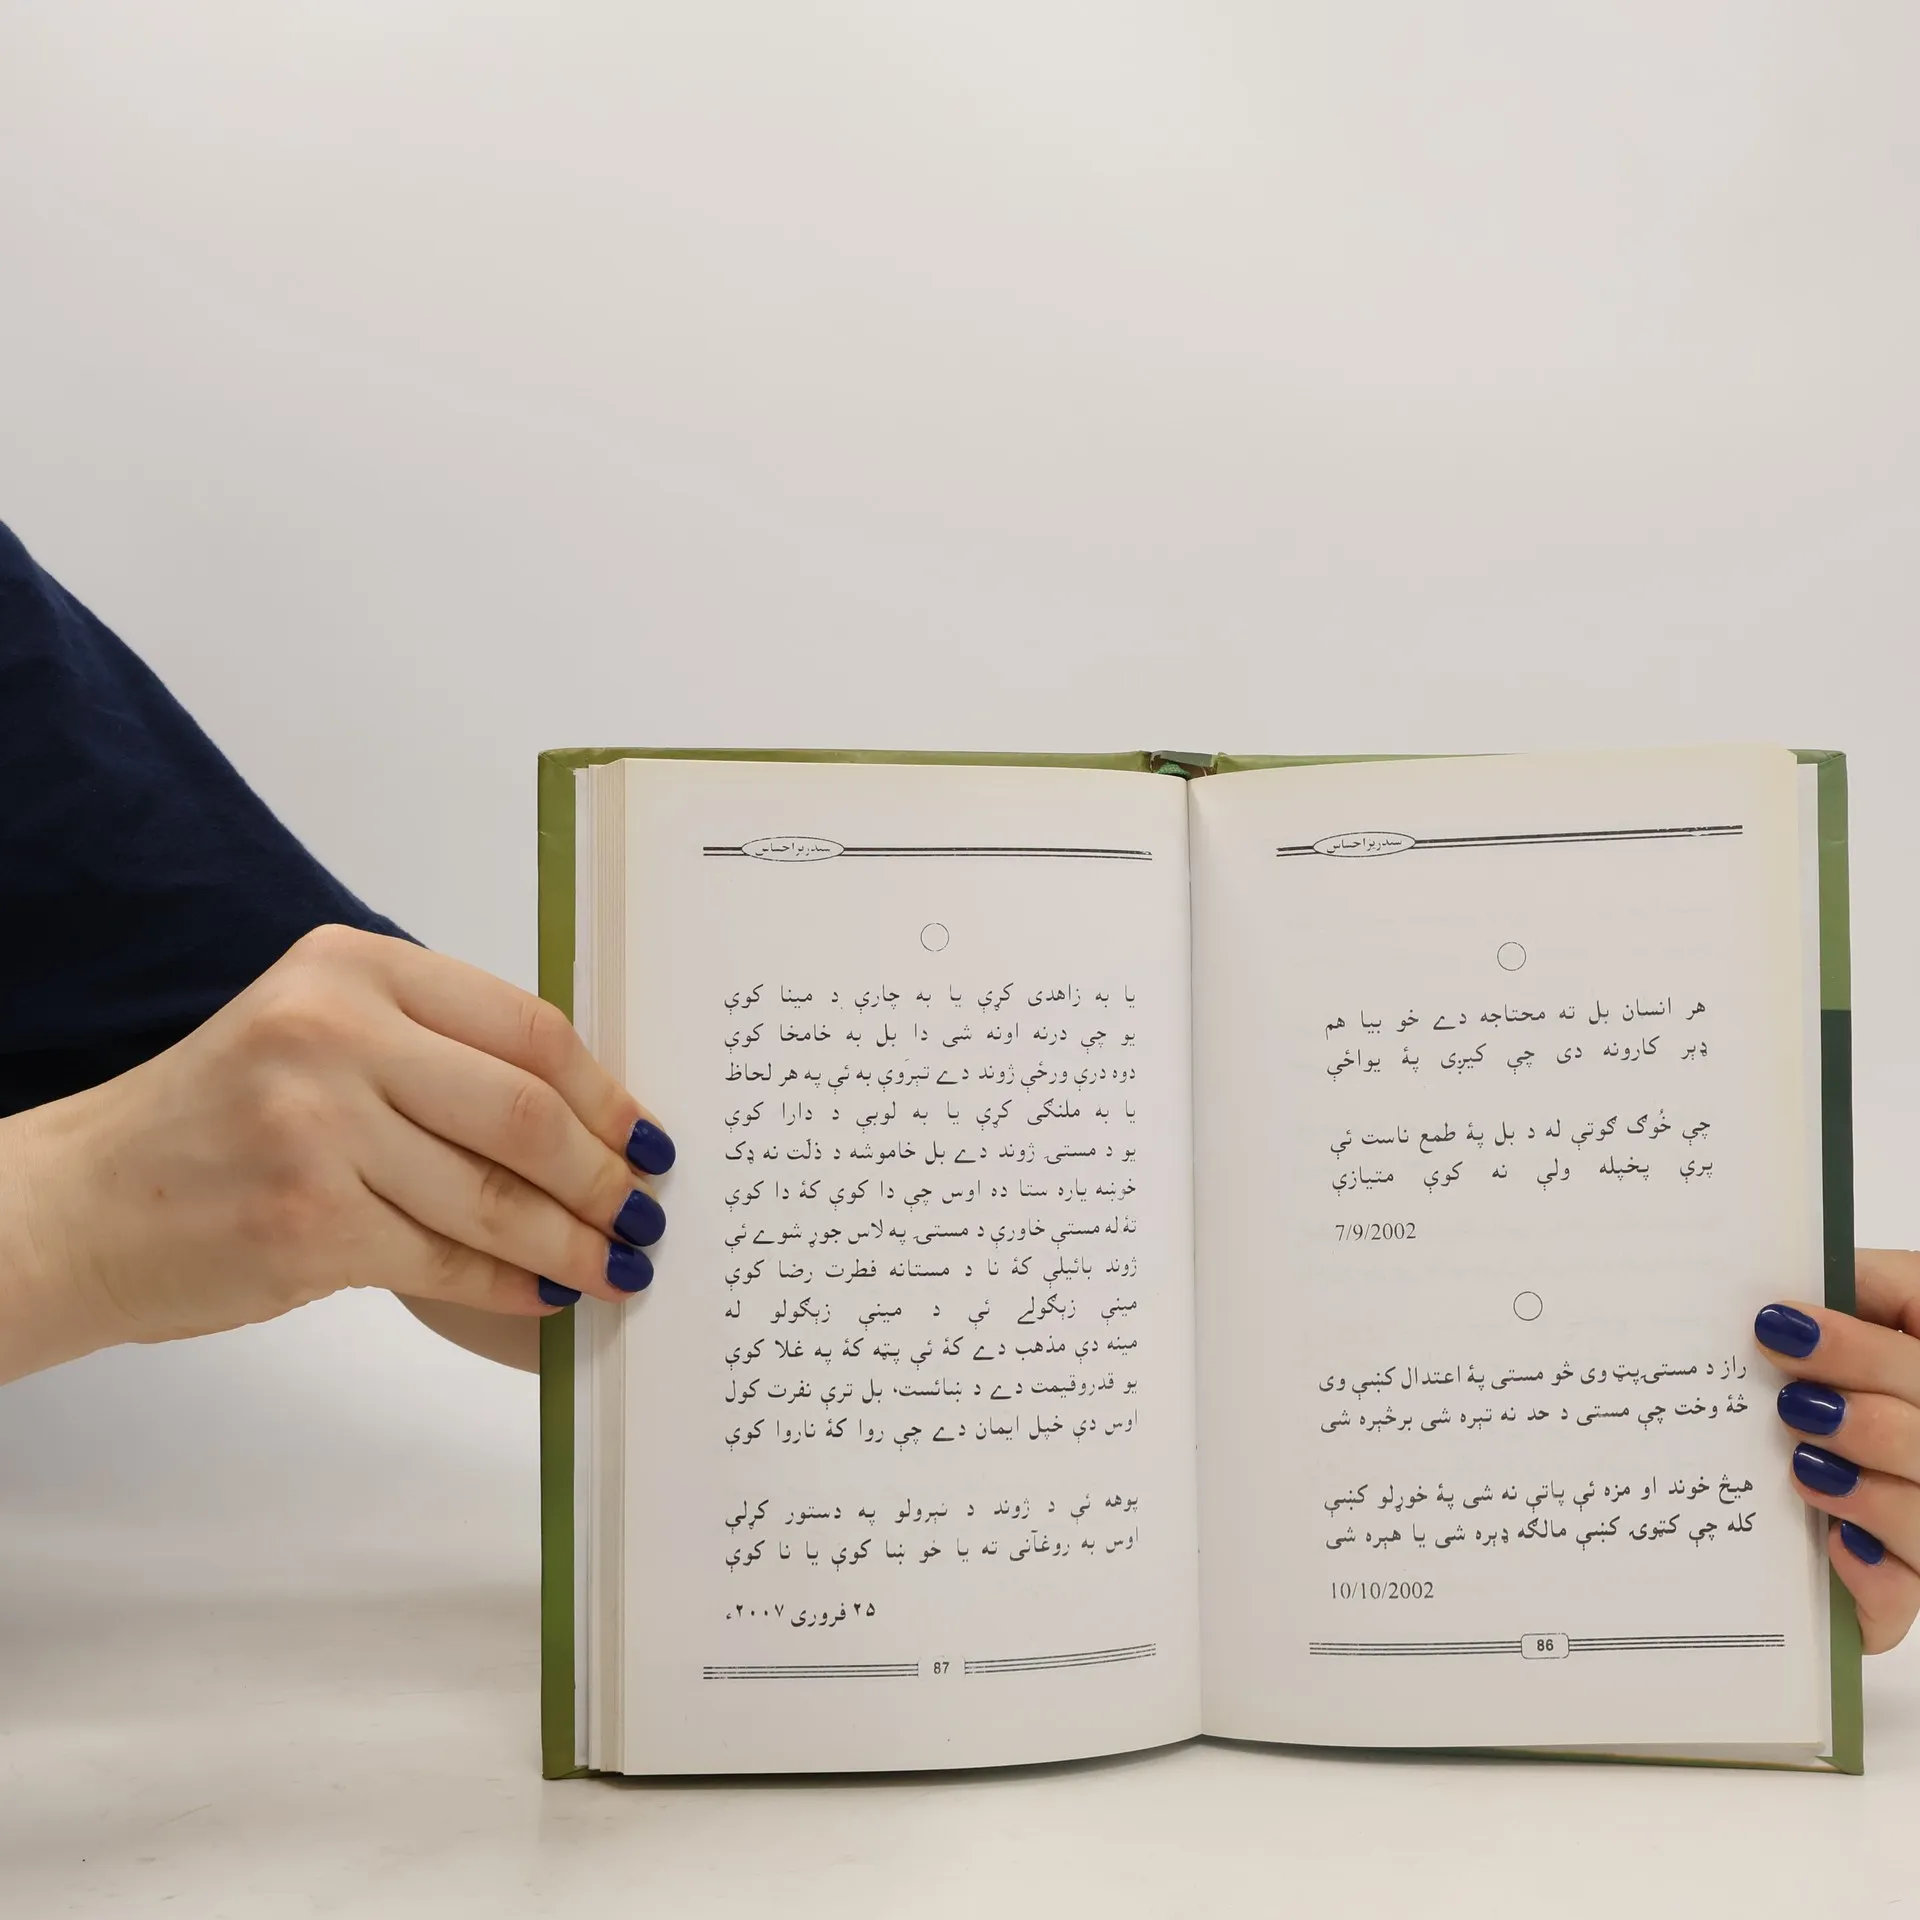 سندریز احساس
هر انسان بل ته محتاجه دے خو بیا هم
ډېر کارونه دی چې کیږی پۀ یواځې
چې څوک ګوتې له د بل پۀ طمع ناست ئې
پرې پخپله ولې نه کوې متیازې
7/9/2002
راز د مستیٔ پټ وی څو مستی پۀ اعتدال کښې وی
څۀ وخت چې مستی د حد نه تېره شی برڅېره شی
هیڅ خوند او مزه ئې پاتې نه شی پۀ خوړلو کښې
کله چې کټوۍ کښې مالګه ډېره شی یا هېره شی
10/10/2002
86
سندریز احساس
یا به زاهدی کړې یا به چارې د مینا کوې
یو چې درنه اونه شی دا بل به خامخا کوې
دوه درې ورځې ژوند دے تېرَوې به ئې په هر لحاظ
یا به ملنګی کړې یا به لوبې د دارا کوې
یو د مستیٔ ژوند دے بل خاموشه د ذلّت نه ډک
خوښه یاره ستا ده اوس چې دا کوې کۀ دا کوې
تۀ له مستې خاورې د مستیٔ په لاس جوړ شوے ئې
ژوند بائیلې کۀ نا د مستانه فطرت رضا کوې
مینې زېګولے ئې د مینې زېګولو له
مینه دې مذهب دے کۀ ئې پټه کۀ په غلا کوې
یو قدروقیمت دے د ښائست، بل ترې نفرت کول
اوس دې خپل ایمان دے چې روا کۀ ناروا کوې
پوهه ئې د ژوند د تېرولو په دستور کړلې
اوس به روغآنی ته یا خو ښا کوې یا نا کوې
۲۵ فروری ۲۰۰۷ء
87